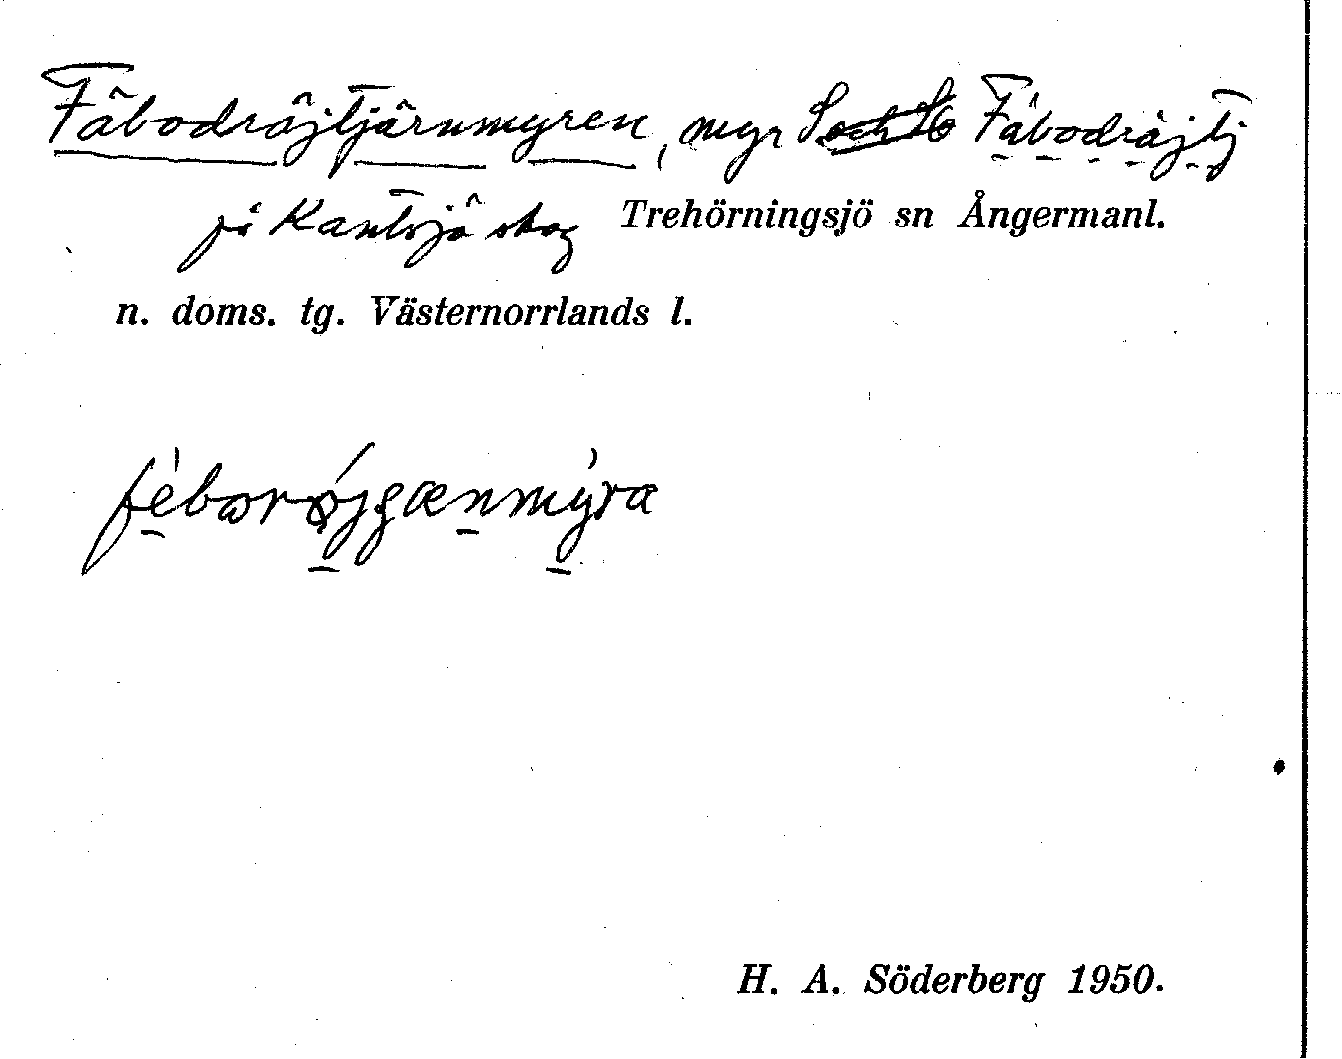 Fäbodröjtjärnmyren, myr S Fäbodröjtj
på Kantsjö skog Trehörningsjö sn Ångermanl.
n. doms. tg. Västernorrlands l.
H. A. Söderberg 1950.